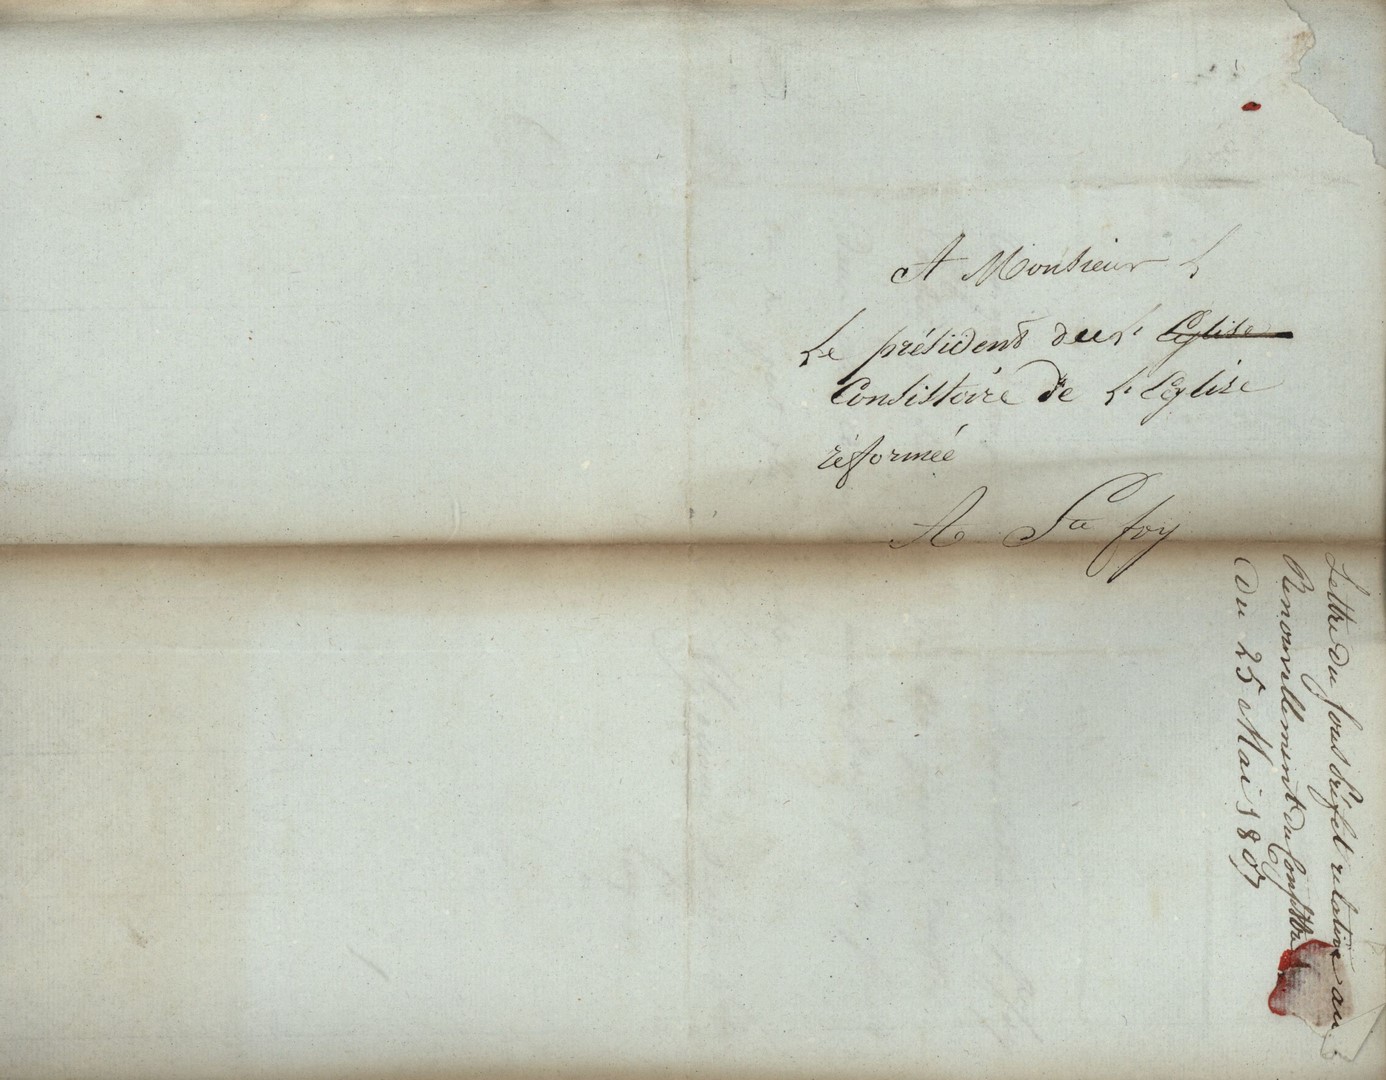 A Monsieur L
Le président du L' Eglise
Consistoire de L'Eglise
réformée
A Ste foy
Lettre du Sous Préfet relative au
Renouvellement du Consistoire
du 25 Mai 1807